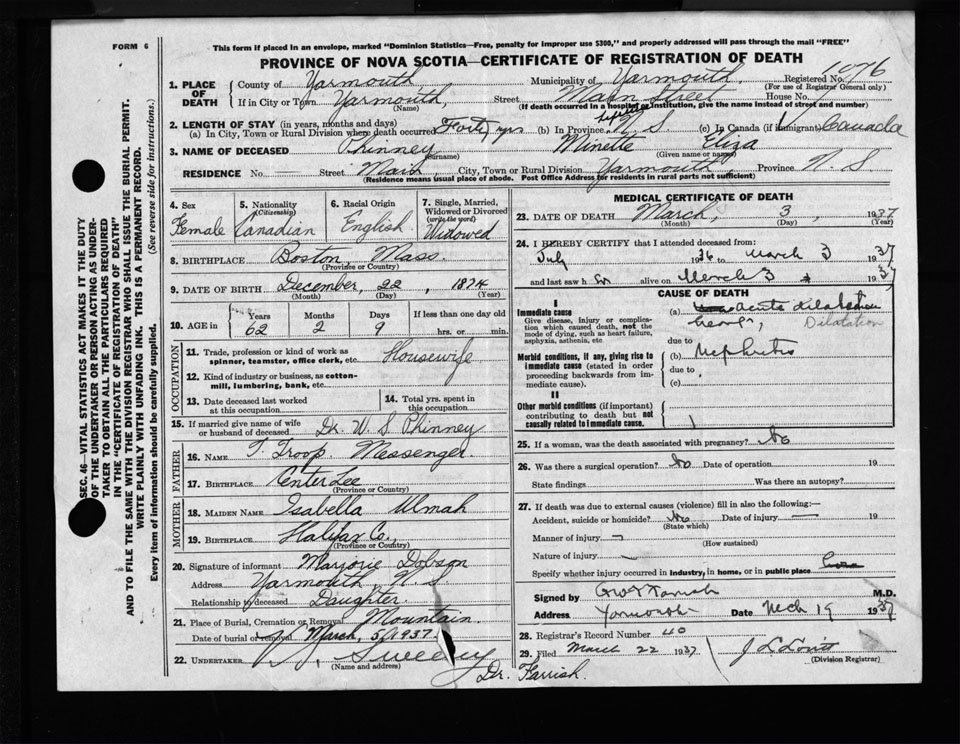 FORM 6
This form if placed in an envelope, marked "Dominion Statistics—Free, penalty for improper use $300," and properly addressed will pass through the mail "FREE"
PROVINCE OF NOVA SCOTIA—CERTIFICATE OF REGISTRATION OF DEATH
1. PLACE OF DEATH
County of Yarmouth Municipality of Yarmouth, Registered No. 1076
(For use of Registrar General only)
If in City or Town Yarmouth, Street Main Street House No.
(Name) (If death occurred in a hospital or institution, give the name instead of street and number)
2. LENGTH OF STAY (in years, months and days)
(a) In City, Town or Rural Division where death occurred Forty yrs (b) In Province N.S. (c) In Canada (if immigrant) Canada
3. NAME OF DECEASED Phinney Minette Eliza
(Surname) (Given name or names)
RESIDENCE No. — Street Main, City, Town or Rural Division Yarmouth, Province N.S.
(Residence means usual place of abode. Post Office Address for residents in rural parts not sufficient)
4. Sex
Female
5. Nationality
(Citizenship)
Canadian
6. Racial Origin
English
7. Single, Married, Widowed or Divorced
(write the word)
Widowed
8. BIRTHPLACE Boston, Mass.
(Province or Country)
9. DATE OF BIRTH December, 22, 1874
(Month) (Day) (Year)
10. AGE in Years Months Days If less than one day old
62 2 9 hrs. or min.
OCCUPATION
11. Trade, profession or kind of work as spinner, teamster, office clerk, etc. Housewife
12. Kind of industry or business, as cotton-mill, lumbering, bank, etc.
13. Date deceased last worked at this occupation
14. Total yrs. spent in this occupation
15. If married give name of wife or husband of deceased Dr. W. S. Phinney
FATHER
16. NAME T. Troop Messenger
17. BIRTHPLACE Center Lee
(Province or Country)
MOTHER
18. MAIDEN NAME Isabella Ulmah
19. BIRTHPLACE Halifax Co.,
(Province or Country)
20. Signature of informant Marjorie Dobson
Address Yarmouth, N.S.
Relationship to deceased Daughter
21. Place of Burial, Cremation or Removal Mountain.
Date of burial or removal March, 5, 1937.
22. UNDERTAKER Sweeny
(Name and address)
Dr. Farrish.
MEDICAL CERTIFICATE OF DEATH
23. DATE OF DEATH March, 3, 1937
(Month) (Day) (Year)
24. I HEREBY CERTIFY that I attended deceased from:
July 1936 to March 3 1937
and last saw h er alive on March 3 1937
CAUSE OF DEATH
I
Immediate cause
Give disease, injury or complication which caused death, not the mode of dying, such as heart failure, asphyxia, asthenia, etc.
(a) acute dilatation
Dilatation
due to
Morbid conditions, if any, giving rise to immediate cause (stated in order proceeding backwards from immediate cause).
(b) Nephritis
due to
(c)
II
Other morbid conditions (if important) contributing to death but not causally related to immediate cause.
25. If a woman, was the death associated with pregnancy? No
26. Was there a surgical operation? No Date of operation 19
State findings Was there an autopsy?
27. If death was due to external causes (violence) fill in also the following:—
Accident, suicide or homicide? No Date of injury — 19
(State which)
Manner of injury —
(How sustained)
Nature of injury
Specify whether injury occurred in industry, in home, or in public place
Signed by M.D.
Address Yarmouth Date Mch 19 1937
28. Registrar's Record Number 40
29. Filed March 22 1937
(Division Registrar)
SEC. 46—VITAL STATISTICS ACT MAKES IT THE DUTY
OF THE UNDERTAKER OR PERSON ACTING AS UNDER-
TAKER TO OBTAIN ALL THE PARTICULARS REQUIRED
IN THE "CERTIFICATE OF REGISTRATION OF DEATH"
AND TO FILE THE SAME WITH THE DIVISION REGISTRAR WHO SHALL ISSUE THE BURIAL PERMIT.
WRITE PLAINLY WITH UNFADING INK. THIS IS A PERMANENT RECORD.
Every item of information should be carefully supplied. (See reverse side for instructions.)